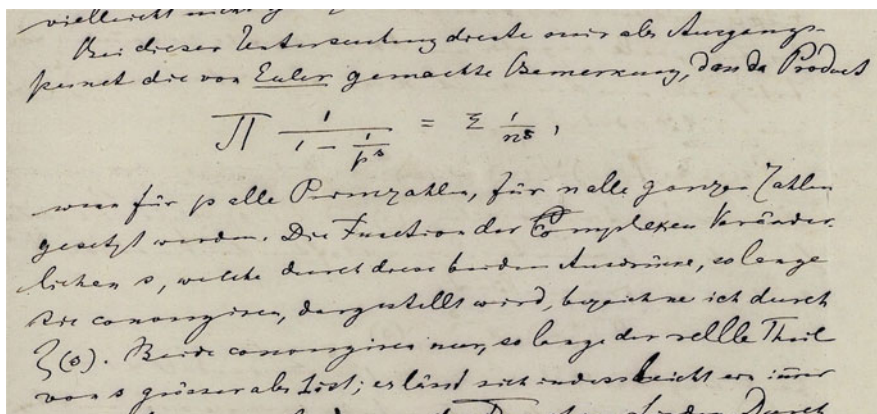 vielleicht nicht
Bei dieser Untersuchung diente mir als Ausgangs-
punct die von Euler gemachte Bemerkung, dass das Product
∏ 1/(1 − 1/p^s) = Σ 1/n^s,
wenn für p alle Primzahlen, für n alle ganzen Zahlen
gesetzt werden. Die Function der complexen Veränder-
lichen s, welche durch diese beiden Ausdrücke, so lange
sie convergiren, dargestellt wird, bezeichne ich durch
ζ(s). Beide convergiren nur, so lange der reelle Theil
von s grösser als 1 ist; es lässt sich indess leicht ein immer